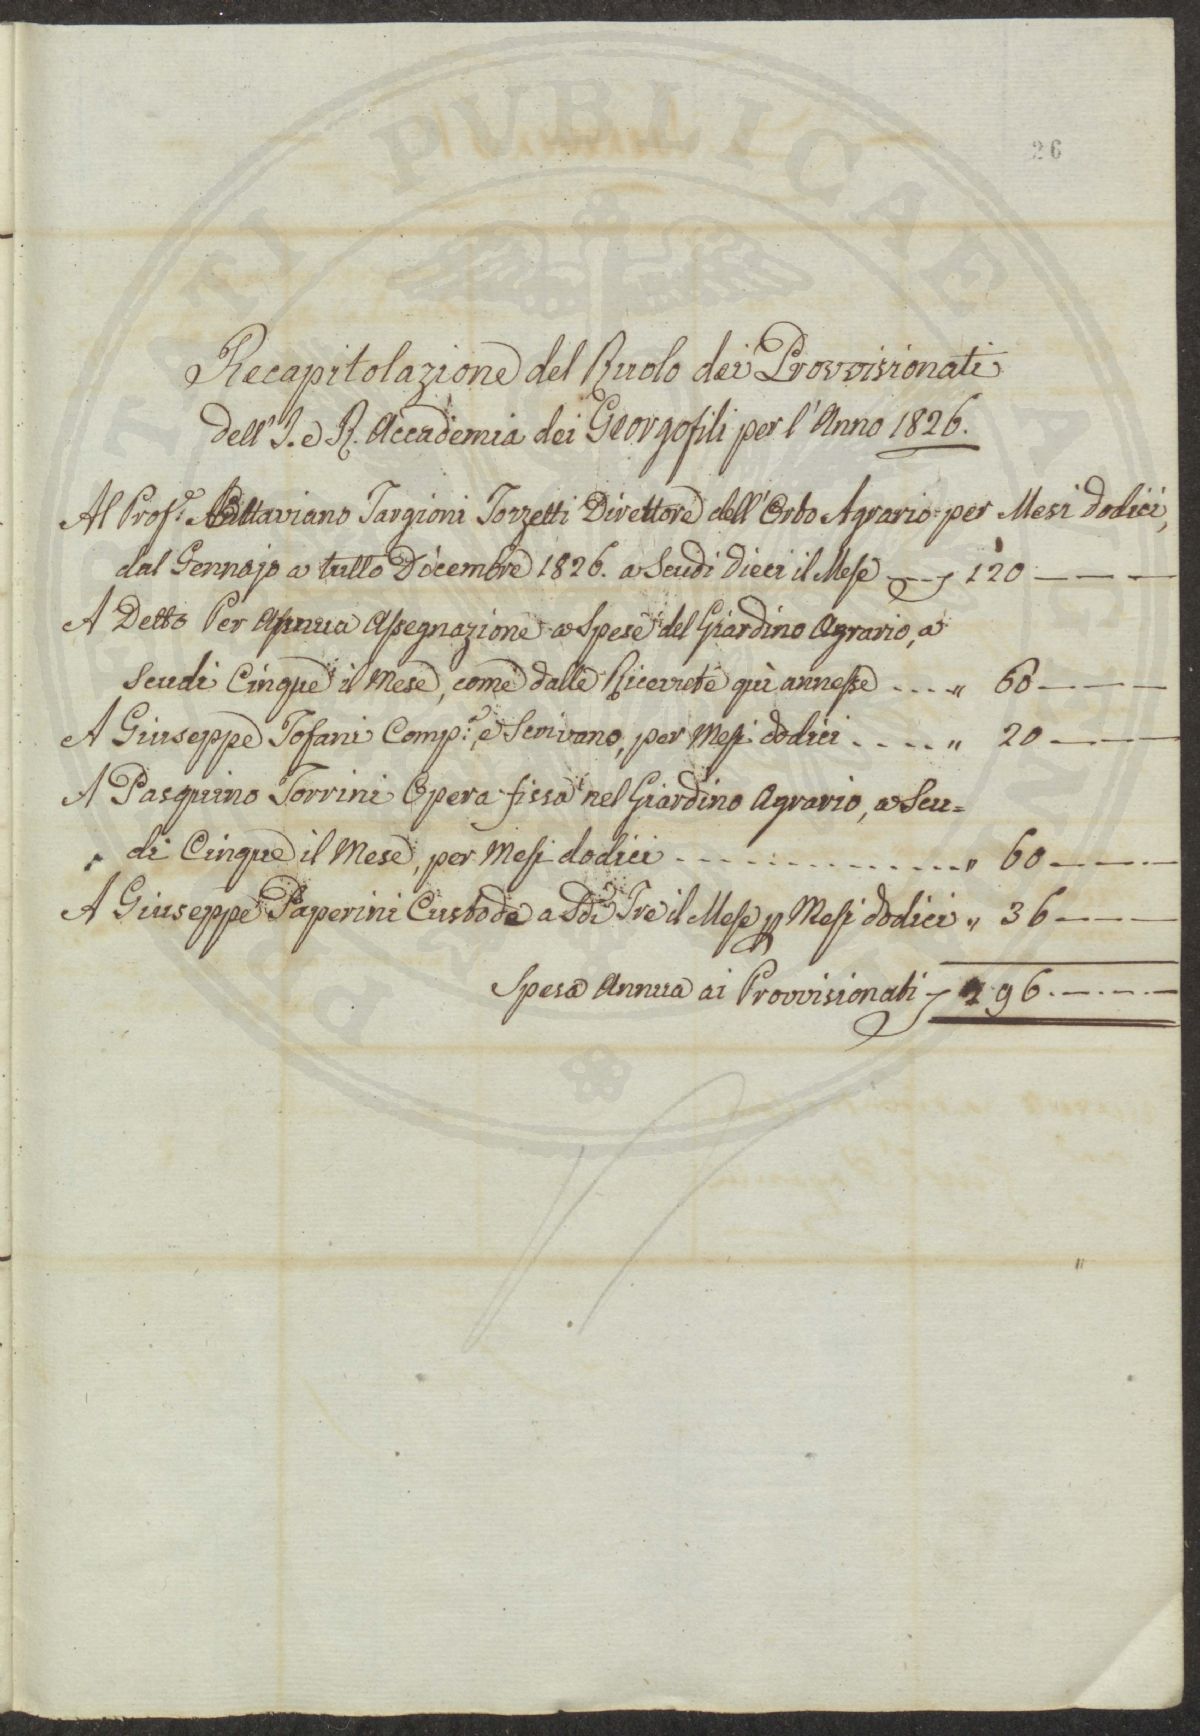 PROSPERITATI PUBLICAE AUGENDAE
26
Recapitolazione del Ruolo dei Provvisionati
dell'I. e R. Accademia dei Georgofili per l'Anno 1826.
Al Prof.e Ottaviano Targioni Tozzetti Direttore dell'Orto Agrario per Mesi dodici,
dal Gennajo a tutto Dicembre 1826. a Scudi dieci il Mese — 120 — — —
A Detto Per Annua Assegnazione a Spese del Giardino Agrario, a
Scudi Cinque il Mese, come dalle Ricevute quì annesse .... " 60 — — —
A Giuseppe Tofani Comp.e, e Scrivano, per Mesi dodici .... " 20 — — —
A Pasquino Torrini Opera fissa nel Giardino Agrario, a Scu=
di Cinque il Mese, per Mesi dodici .............. " 60 — — —
A Giuseppe Paperini Custode a Sdi Tre il Mese p Mesi dodici " 36 — — —
Spesa Annua ai Provvisionati — 296. — — —